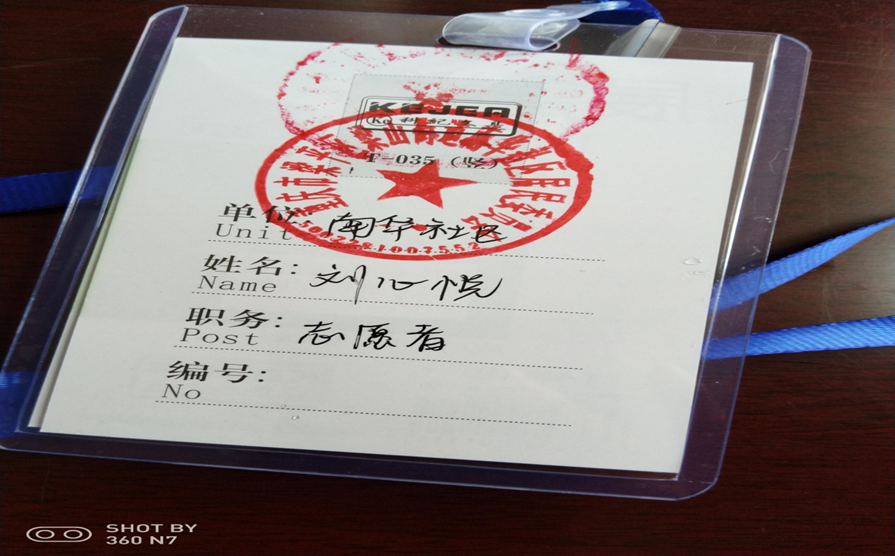 KEJEA
Ke 科记
T-035 (竖)
单位: 南华社区
Unit
姓名: 刘心悦
Name
职务: 志愿者
Post
编号:
No
SHOT BY
360 N7